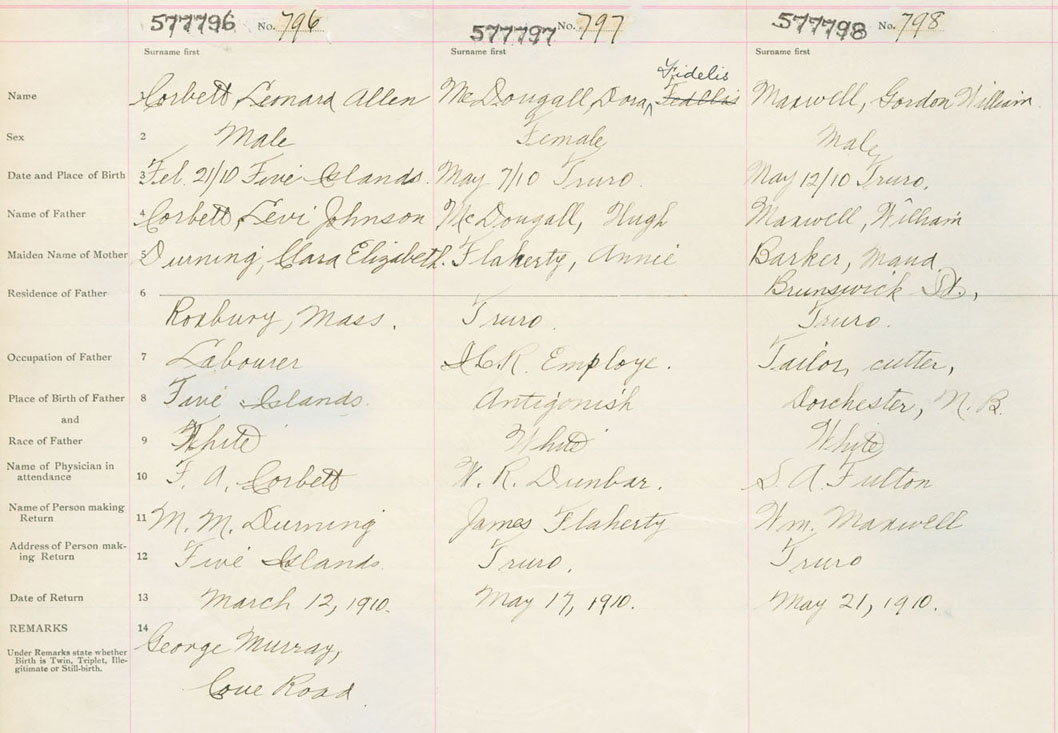 577796 No. 796 577797 No. 797 577798 No. 798
Surname first Surname first Surname first
Fidelis
Name 1 Corbett Leonard Allen McDougall, Dora, Fidellis Maxwell, Gordon William
Sex 2 Male Female Male
Date and Place of Birth 3 Feb. 21/10 Five Islands. May 7/10 Truro. May 12/10 Truro.
Name of Father 4 Corbett, Levi Johnson McDougall, Hugh Maxwell, William
Maiden Name of Mother 5 Durning, Clara Elizabeth. Flaherty, Annie Barker, Maud
Residence of Father 6 Brunswick St.,
Roxbury, Mass. Truro. Truro.
Occupation of Father 7 Labourer I.C.R. Employe. Tailor, cutter,
Place of Birth of Father 8 Five Islands. Antigonish Dorchester, N.B.
and
Race of Father 9 White White White
Name of Physician in
attendance 10 F. A. Corbett W. R. Dunbar. S. A. Fulton
Name of Person making
Return 11 M. M. Durning James Flaherty Wm. Maxwell
Address of Person mak-
ing Return 12 Five Islands. Truro. Truro
Date of Return 13 March 12, 1910. May 17, 1910. May 21, 1910.
REMARKS 14
George Murray,
Under Remarks state whether
Birth is Twin, Triplet, Ille-
gitimate or Still-birth.
Cove Road.